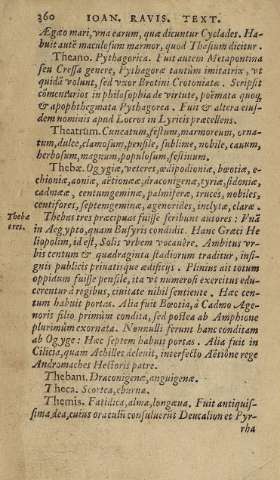 360 IOAN. RAVIS. TEXT.
Ægæo mari, vna earum, quæ dicuntur Cyclades. Ha-
buit autē maculosum marmor, quod Thasium dicitur.
Theano. Pythagorica. Fuit autem Metapontina
seu Cressa genere, Pythagoræ tantùm imitatrix, vt
quidā volunt, sed vxor Brotini Crotoniatæ. Scripsit
cōmentarios in philosophia de virtute, poëmata quoq;
& apophthegmata Pythagorea. Fuit & altera eius-
dem nominis apud Locros in Lyricis præcellens.
Theatrum. Cuneatum, festum, marmoreum, orna-
tum, dulce, clamosum, pensile, sublime, nobile, cauum,
herbosum, magnum, populosum, festiuum.
Thebæ. Ogygiæ, veteres, œdipodioniæ, bœotiæ, e-
chioniæ, aoniæ, aëtioneæ, draconigenæ, tyriæ, sidoniæ,
cadmææ, centumgeminæ, palmiferæ, truces, nobiles,
centifores, septemgeminæ, agenorides, inclytæ, claræ.
Thebæ tres. Thebas tres præcipuas fuisse scribunt autores: Vnā
in Aegypto, quam Busyris condidit. Hanc Græci He
liopolim, id est, Solis vrbem vocauêre. Ambitus vr-
bis centum & quadraginta stadiorum traditur, insi-
gnis publicis priuatisque ædificijs. Plinius ait totum
oppidum fuisse pensile, ita vt numerosi exercitus edu-
cerentur à regibus, ciuitate nihil sentiente. Hæc cen-
tum habuit portas. Alia fuit Bœotia, à Cadmo Age-
noris filio primùm condita, sed postea ab Amphione
plurimùm exornata. Nonnulli ferunt hanc conditam
ab Ogyge: Hæc septem habuit portas. Alia fuit in
Cilicia, quam Achilles deleuit, interfecto Aëtione rege
Andromaches Hectoris patre.
Thebani. Draconigenæ, anguigenæ.
Theca. Scortea, eburna.
Themis. Fatidica, alma, longæua. Fuit antiquis-
sima dea, cuius oraculū consuluerūt Deucalion et Pyr-
rha